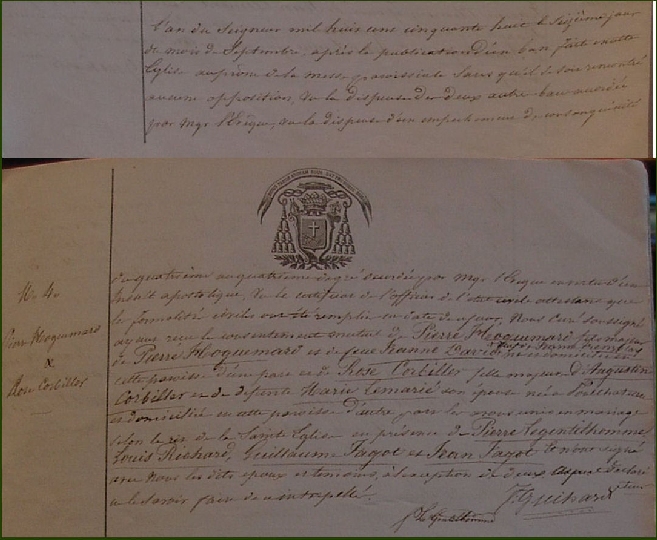 L'an du Seigneur mil huit cent cinquante huit le seizième jour
du mois de Septembre, après la publication d'un ban faite en cette
Eglise au prône de la messe paroissiale sans qu'il se soit rencontré
aucune opposition, vu la dispense des deux autres bans accordée
par Mgr l'Evêque, vu la dispense d'un empêchement de consanguinité
du quatrième au quatrième degré accordée par Mgr l'Evêque en vertu d'un
Indult apostolique, vu le certificat de l'officier de l'état civil attestant que
les formalités civiles ont été remplies en date de ce jour, Nous Curé soussigné
avons reçu le consentement mutuel de Pierre Hoquemaré fils majeur
de Pierre Hoquemaré et de feue Jeanne David
cette paroisse d'une part et de Rose Corbiller fille majeure d'Augustin
Corbiller et de défunte Marie Lemarié son épouse née à
et domiciliée en cette paroisse d'autre part les avons unis en mariage
selon le rit de la Sainte Eglise en présence de Pierre Legentilhomme
Louis Richard, Guillaume Fagot et Jean Fagot
avec Nous les dits époux et témoins, à l'exception de deux
ne le savoir faire de ce interpellé.
N. 4.
Pierre Hoquemaré
x
Rose Corbiller
J Guihard